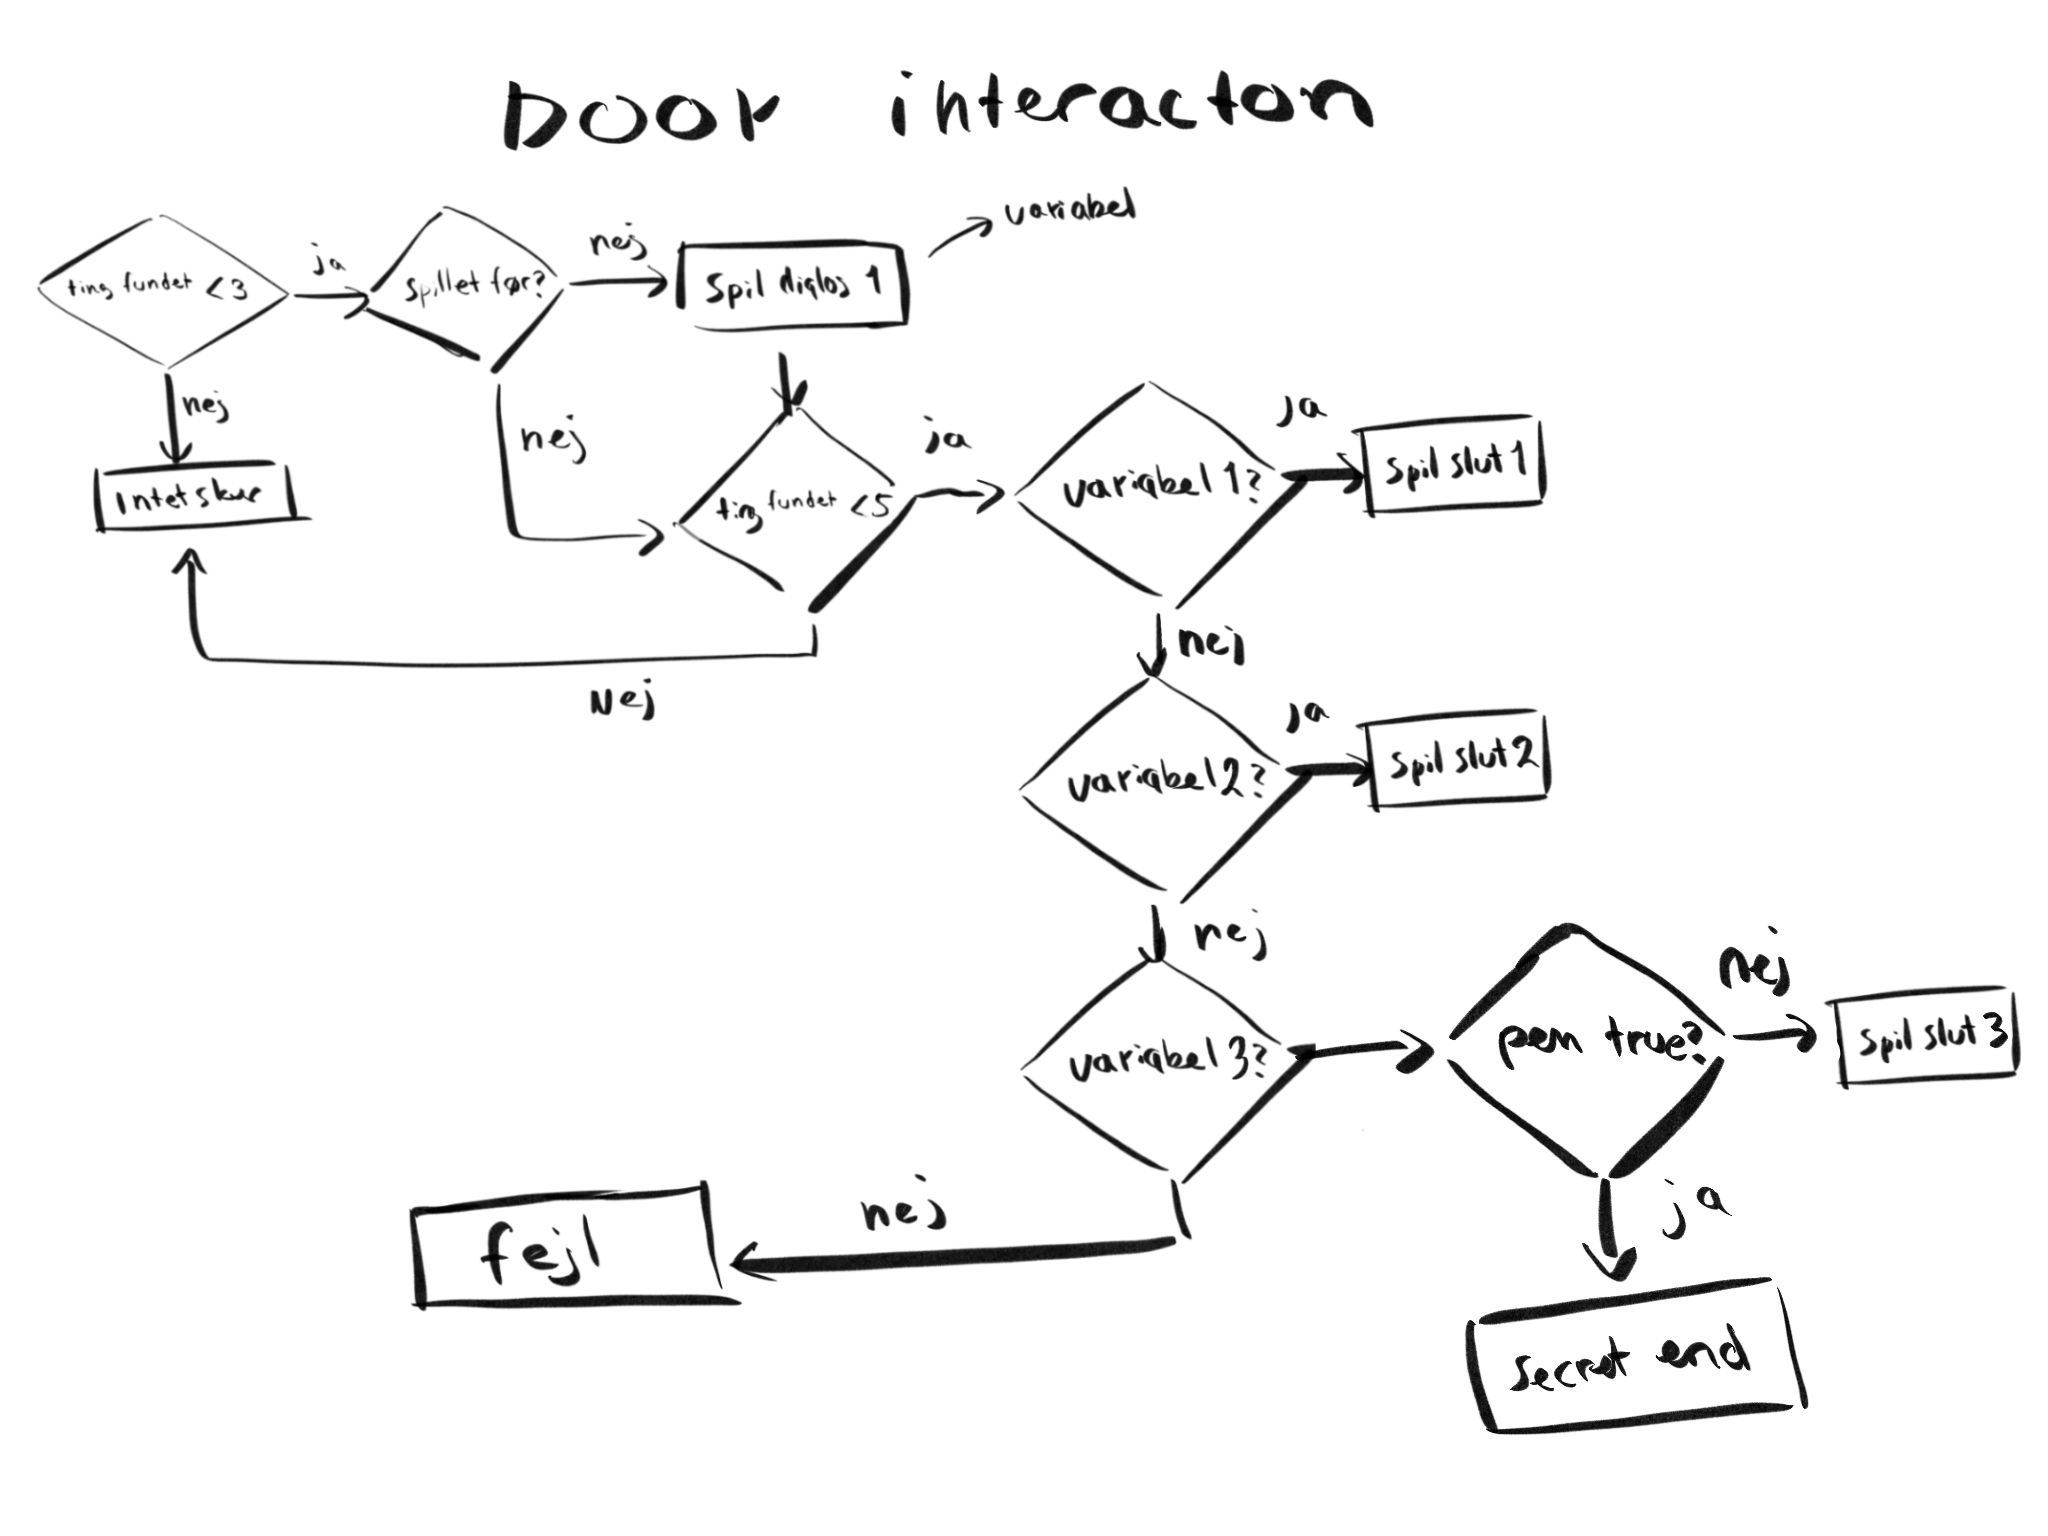 Door interacton
variabel
ting fundet <3
ja
spillet før?
nej
Spil dialog 1
nej
Intet sker
nej
ting fundet <5
ja
variabel 1?
ja
Spil slut 1
Nej
nej
variabel 2?
ja
Spil slut 2
nej
variabel 3?
pem true?
nej
Spil slut 3
nej
fejl
ja
secret end